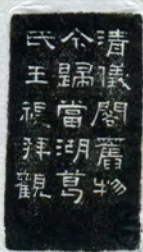 清儀閣舊物
今歸當湖葛
氏王禔拜觀